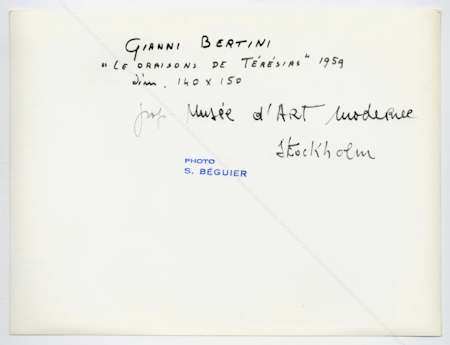 GIANNI BERTINI
"LE ORAISONS DE TÉRÉSIAS" 1959
dim. 140 x 150
prop Musée d'Art moderne
Stockholm
PHOTO
S. BÉGUIER